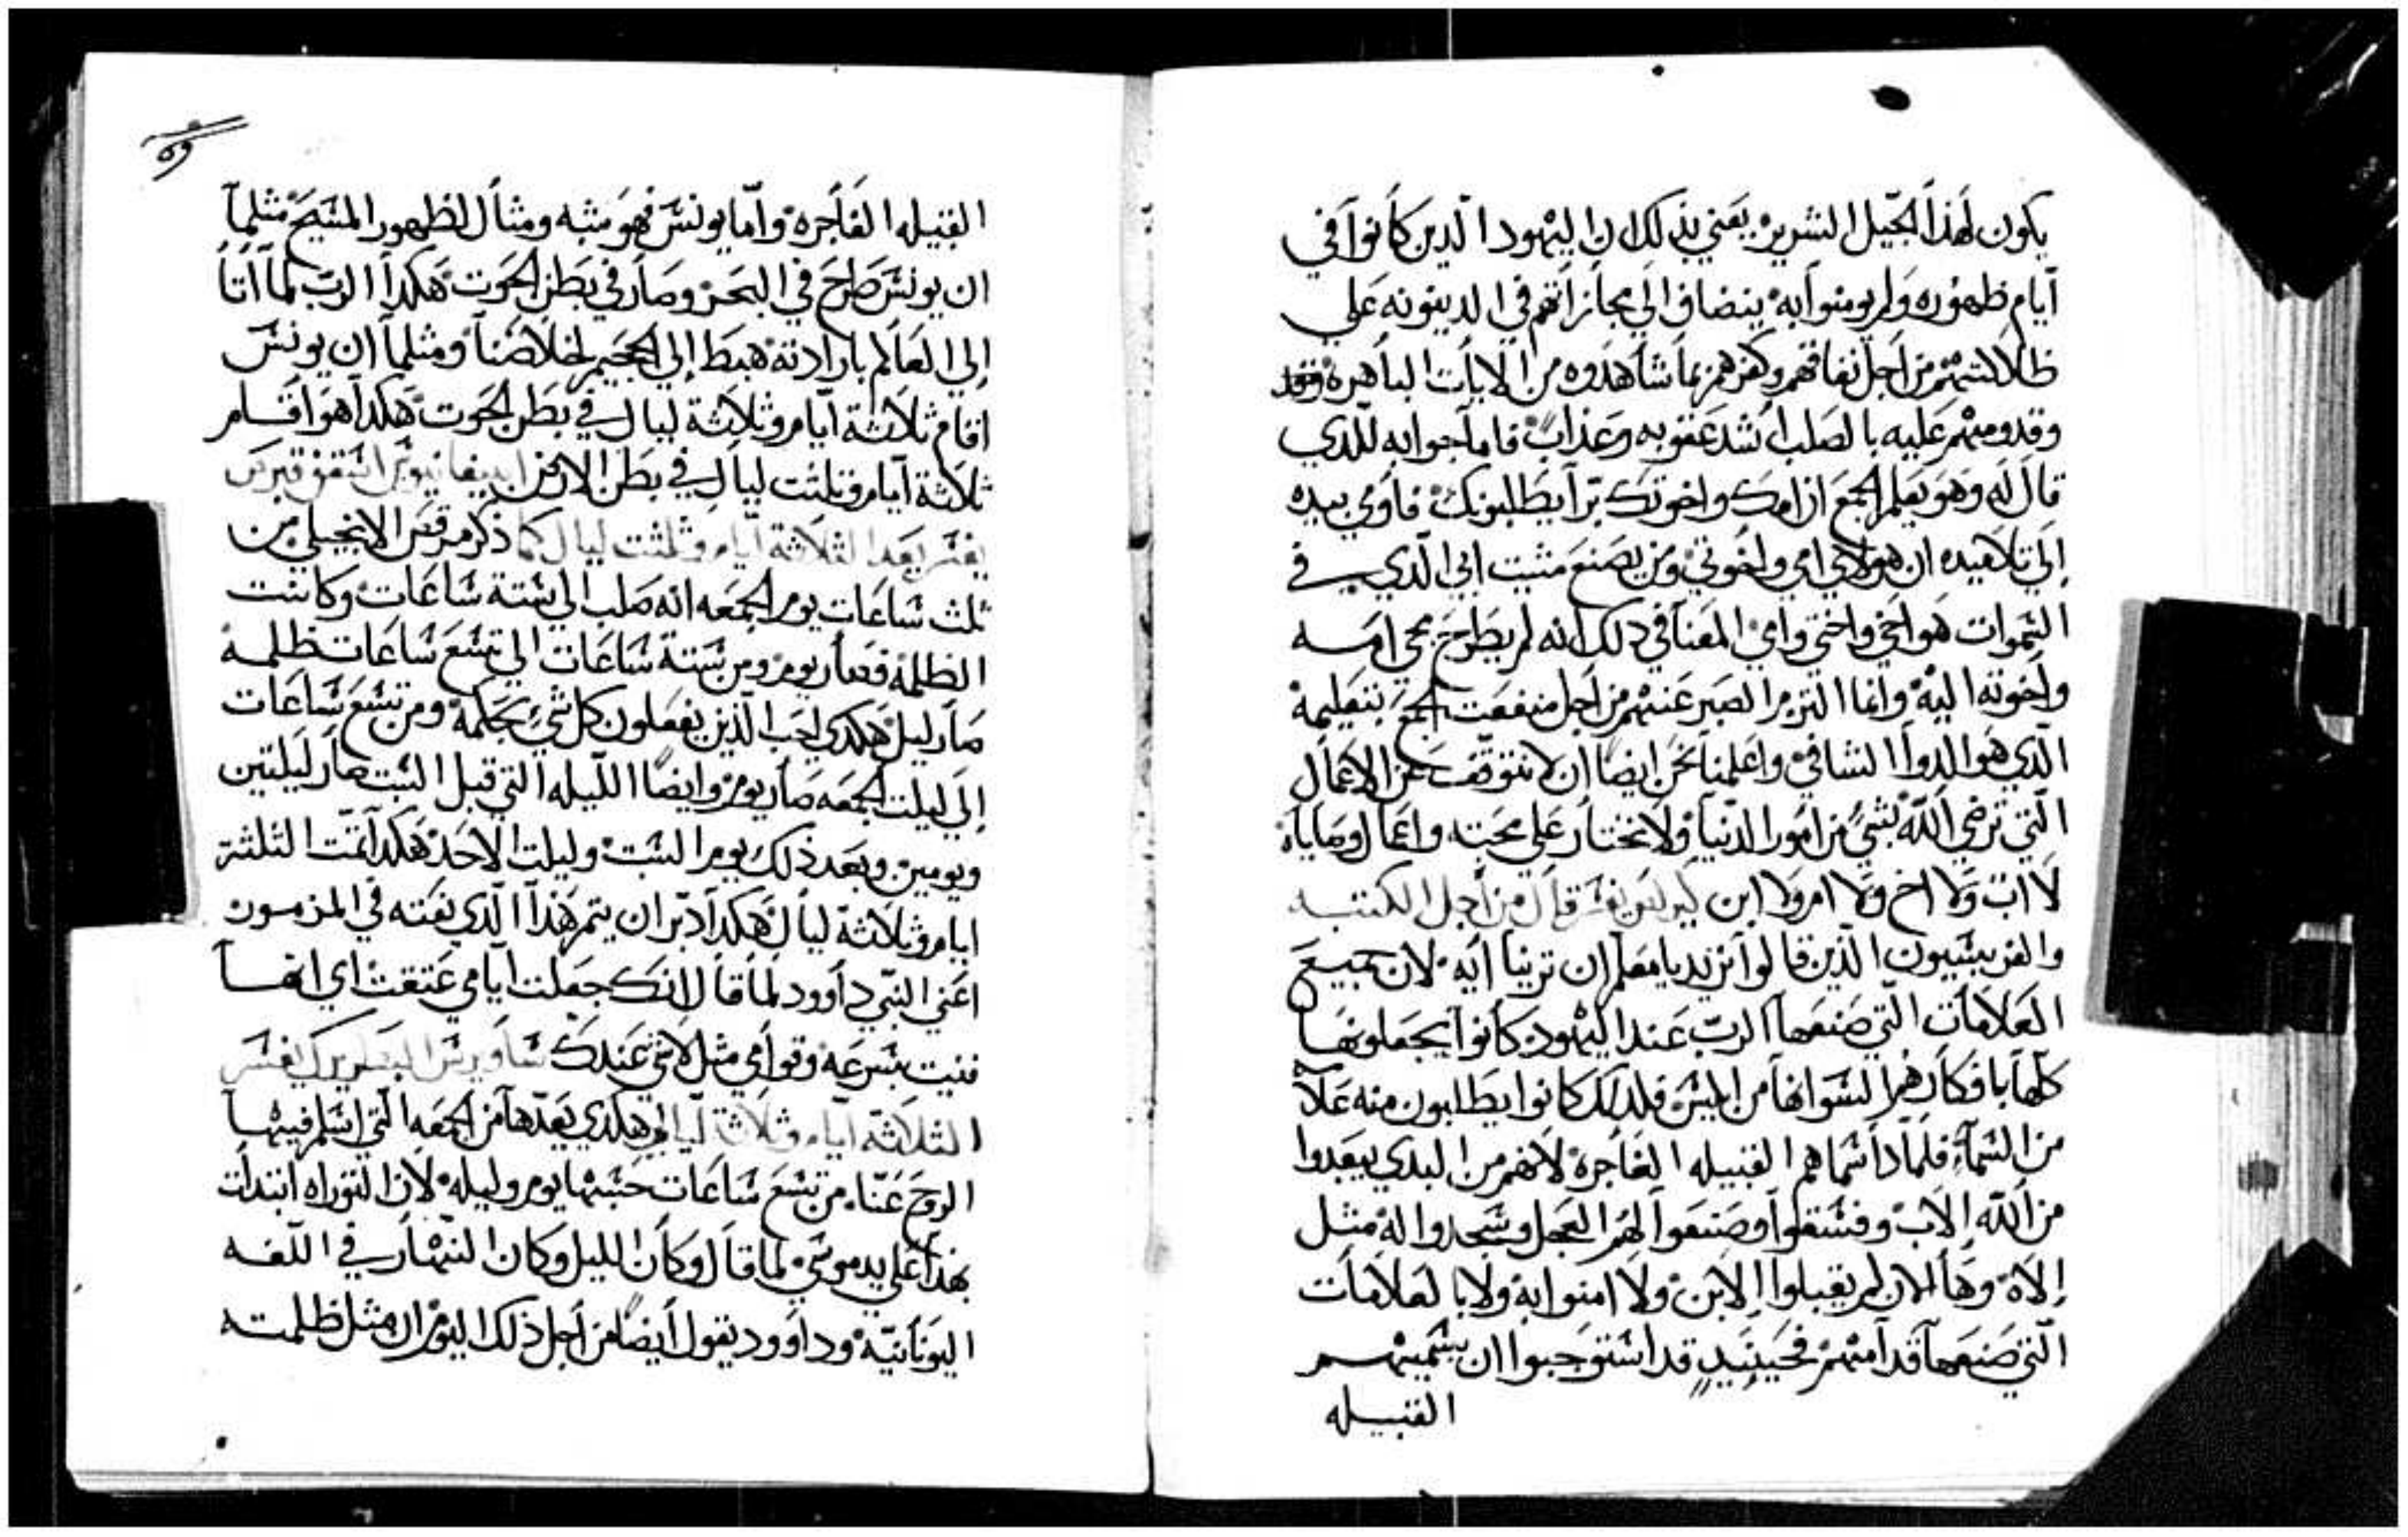 يكون لهذا الجيل الشرير يعني بذلك ان اليهود الدين كانوا في
ايام ظهوره ولم يومنوا به ينضاف الي مجازاتهم في الدينونه علي
ظلالتهم من اجل نفاقهم وكفرهم بما شاهدوه من الايات الباهره
وقدومهم عليه بالصلب اشد عقوبه وعذاب فاما جوابه للدي
قال له وهو يعلم الجمع ان امك واخوتك برا يطلبونك فاومي بيده
الي تلاميده ان هولاي امي واخوتي ومن يصنع مشيت ابي الدي في
السموات هو اخي واختي وامي المعنا في دلك انه لم يطرح مجي امه
واخوته اليه وانما التزم الصبر عنهم من اجل منفعت الجمع بتعليمه
الدي هو الدوا الشافي واعلمنا نحن ايضا ان لا نتوقف عن الاعمال
التي ترضي الله بشي من امور الدنيا ولا نختار علي محبته واعمال وصاياه
لا اب ولا اخ ولا ام ولا ابن كيرلس يفسر قال من اجل الكتبه
والفريسيون الدين قالوا نريد يا معلم ان ترينا ايه لان جميع
العلامات التي صنعها الرب عند اليهود كانوا يجعلونها
كلها بافكارهم السوا انها من ابليس فلدلك كانوا يطلبون منه علا
من السما فلمادا سماهم القبيله الفاجره لانهم من البدي بعدوا
من الله الاب وفسقوا وصنعوا لهم العجل وسجدوا له مثل
الاه وها الان لم يقبلوا الابن ولا امنوا به ولا بالعلامات
التي صنعها قدامهم فحينيد قد استوجبوا ان يسميهم
القبيله
القبيله الفاجره واما يونس فهو شبه ومثال لظهور المسيح مثلما
ان يونس طرح في البحر وصار في بطن الحوت هكدا الرب لما اتا
الي العالم بارادته هبط الي الجحيم لخلاصنا ومثلما ان يونس
اقام ثلاثة ايام وثلاثة ليال في بطن الحوت هكدا هو اقام
ثلاثة ايام وثلثت ليال في بطن الارض ابيفانيوس اسقف قبرس
يفسر بعد الثلاثة ايام وثلثت ليال كما ذكر مرقس الانجيلي من
ثلث ساعات يوم الجمعه انه صلب الي ستة ساعات وكانت
الظلمه فصار يوم ومن ستة ساعات الي تسع ساعات ظلمه
صار ليل هكدي احب الذين يفعلون كل شي بحكمه ومن تسع ساعات
الي ليلت الجمعه صار يوم وايضا الليله التي قبل السبت صار ليلتين
ويومين وبعد ذلك يوم السبت وليلت الاحد هكدا تمت الثلثة
ايام وثلاثة ليال هكدا دبر ان يتم هذا الدي نعته في المزمور
اعني النبي داوود لما قال انك جعلت ايامي عتقت اي انها
فنيت بسرعه وقوامي مثل لاشي عندك ساويرس البطريرك يفسر
الثلاثة ايام وثلاثة ليالي هكدي بعدها من الجمعه التي اسلم فيها
الروح عنا من تسع ساعات حسبها يوم وليله لان التوراه ابتدات
بهذا علي يد موسي لما قال وكان الليل وكان النهار في اللغه
اليونانيه وداوود يقول ايضا من اجل ذلك اليوم ان مثل ظلمته